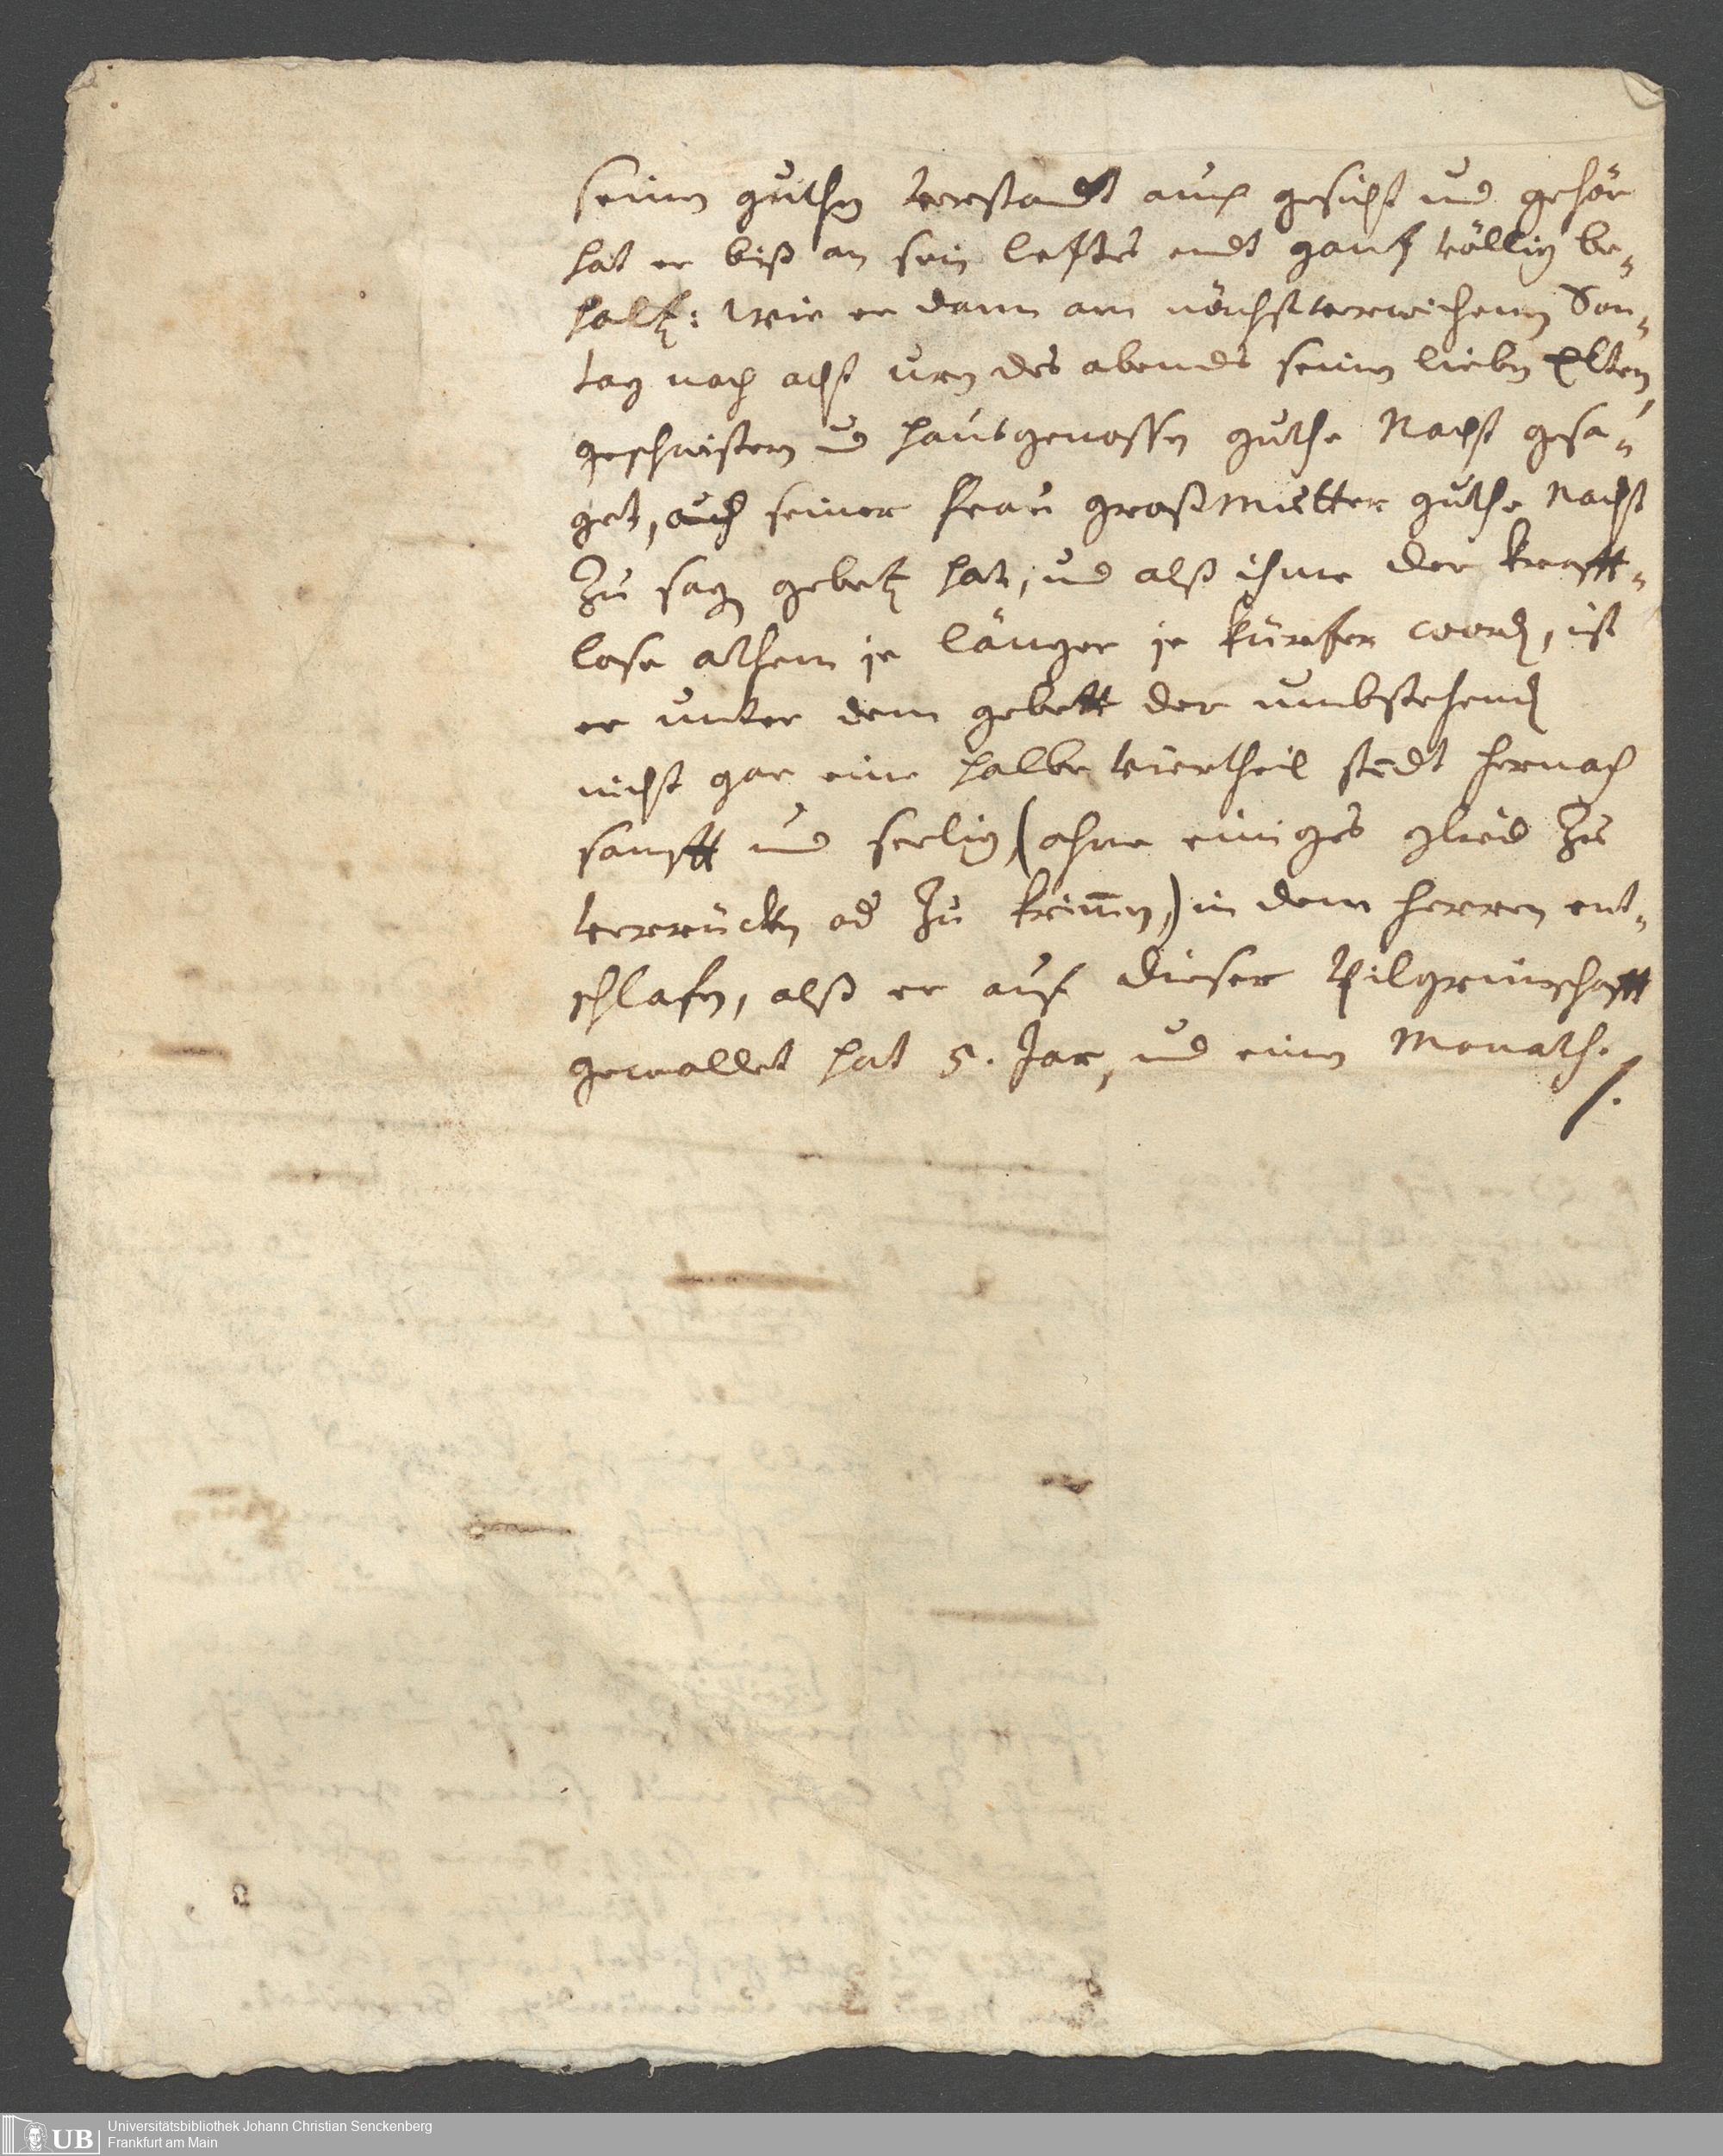 seinen guthen verstandt auch gesicht und gehör
hat er biß an sein letztes endt gantz völlig be¬
halten: Wie er dann am nöchstverwichenen Son¬
tag nach acht uren des abends seinen lieben Eltern,
geschwistern und hausgenossen guthe Nacht gesa¬
get, auch seiner frau großmutter guthe Nacht
zu sagen gebetten hat, und alß ihme der krafft¬
lose athem je länger je kürtzer worden, ist
er unter dem gebett der umbstehenden
nicht gar eine halbe viertheil stundt hernach
sanfft und seelig, (ohne einiges glied zu
verrücken oder zu krümmen,) in dem herren ent¬
schlafen, alß er auf dieser Pilgrimschafft
gewallet hat 5. Jar, und einen Monath.
/.
UB
Universitätsbibliothek Johann Christian Senckenberg
Frankfurt am Main